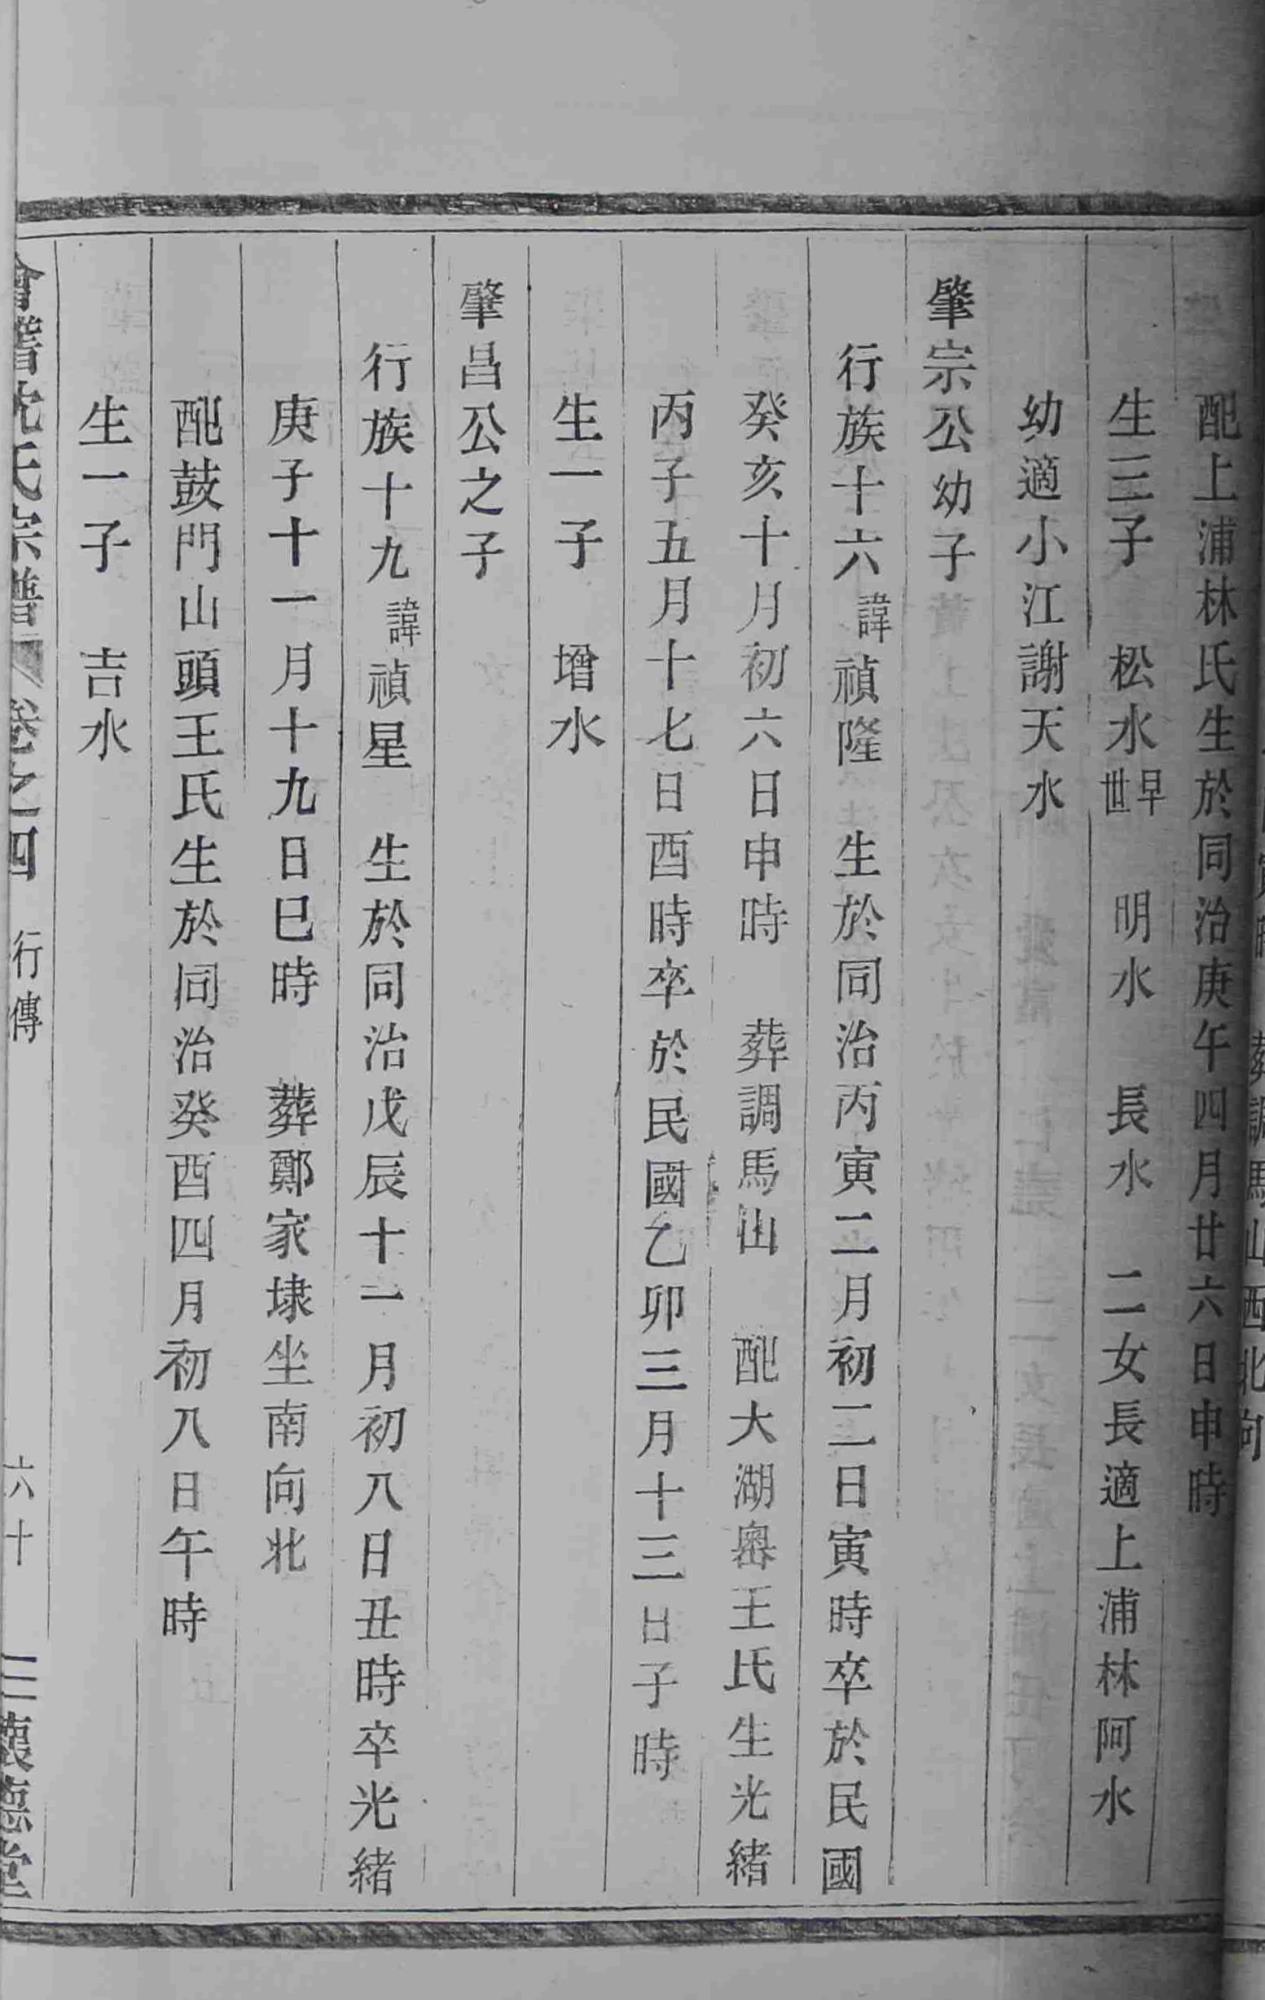 葬調馬山西北向
配上浦林氏生於同治庚午四月廿六日申時
生三子　松水早世　明水　長水　二女長適上浦林阿水
幼適小江謝天水
肇宗公幼子
行族十六諱禎隆　生於同治丙寅二月初二日寅時卒於民國
癸亥十月初六日申時　葬調馬山　配大湖嶴王氏生光緒
丙子五月十七日酉時卒於民國乙卯三月十三日子時
生一子　增水
肇昌公之子
行族十九諱禎星　生於同治戊辰十一月初八日丑時卒光緒
庚子十一月十九日巳時　葬鄭家埭坐南向北
配鼓門山頭王氏生於同治癸酉四月初八日午時
生一子　吉水
會稽沈氏宗譜　卷之四　行傳　六十　三懷德堂